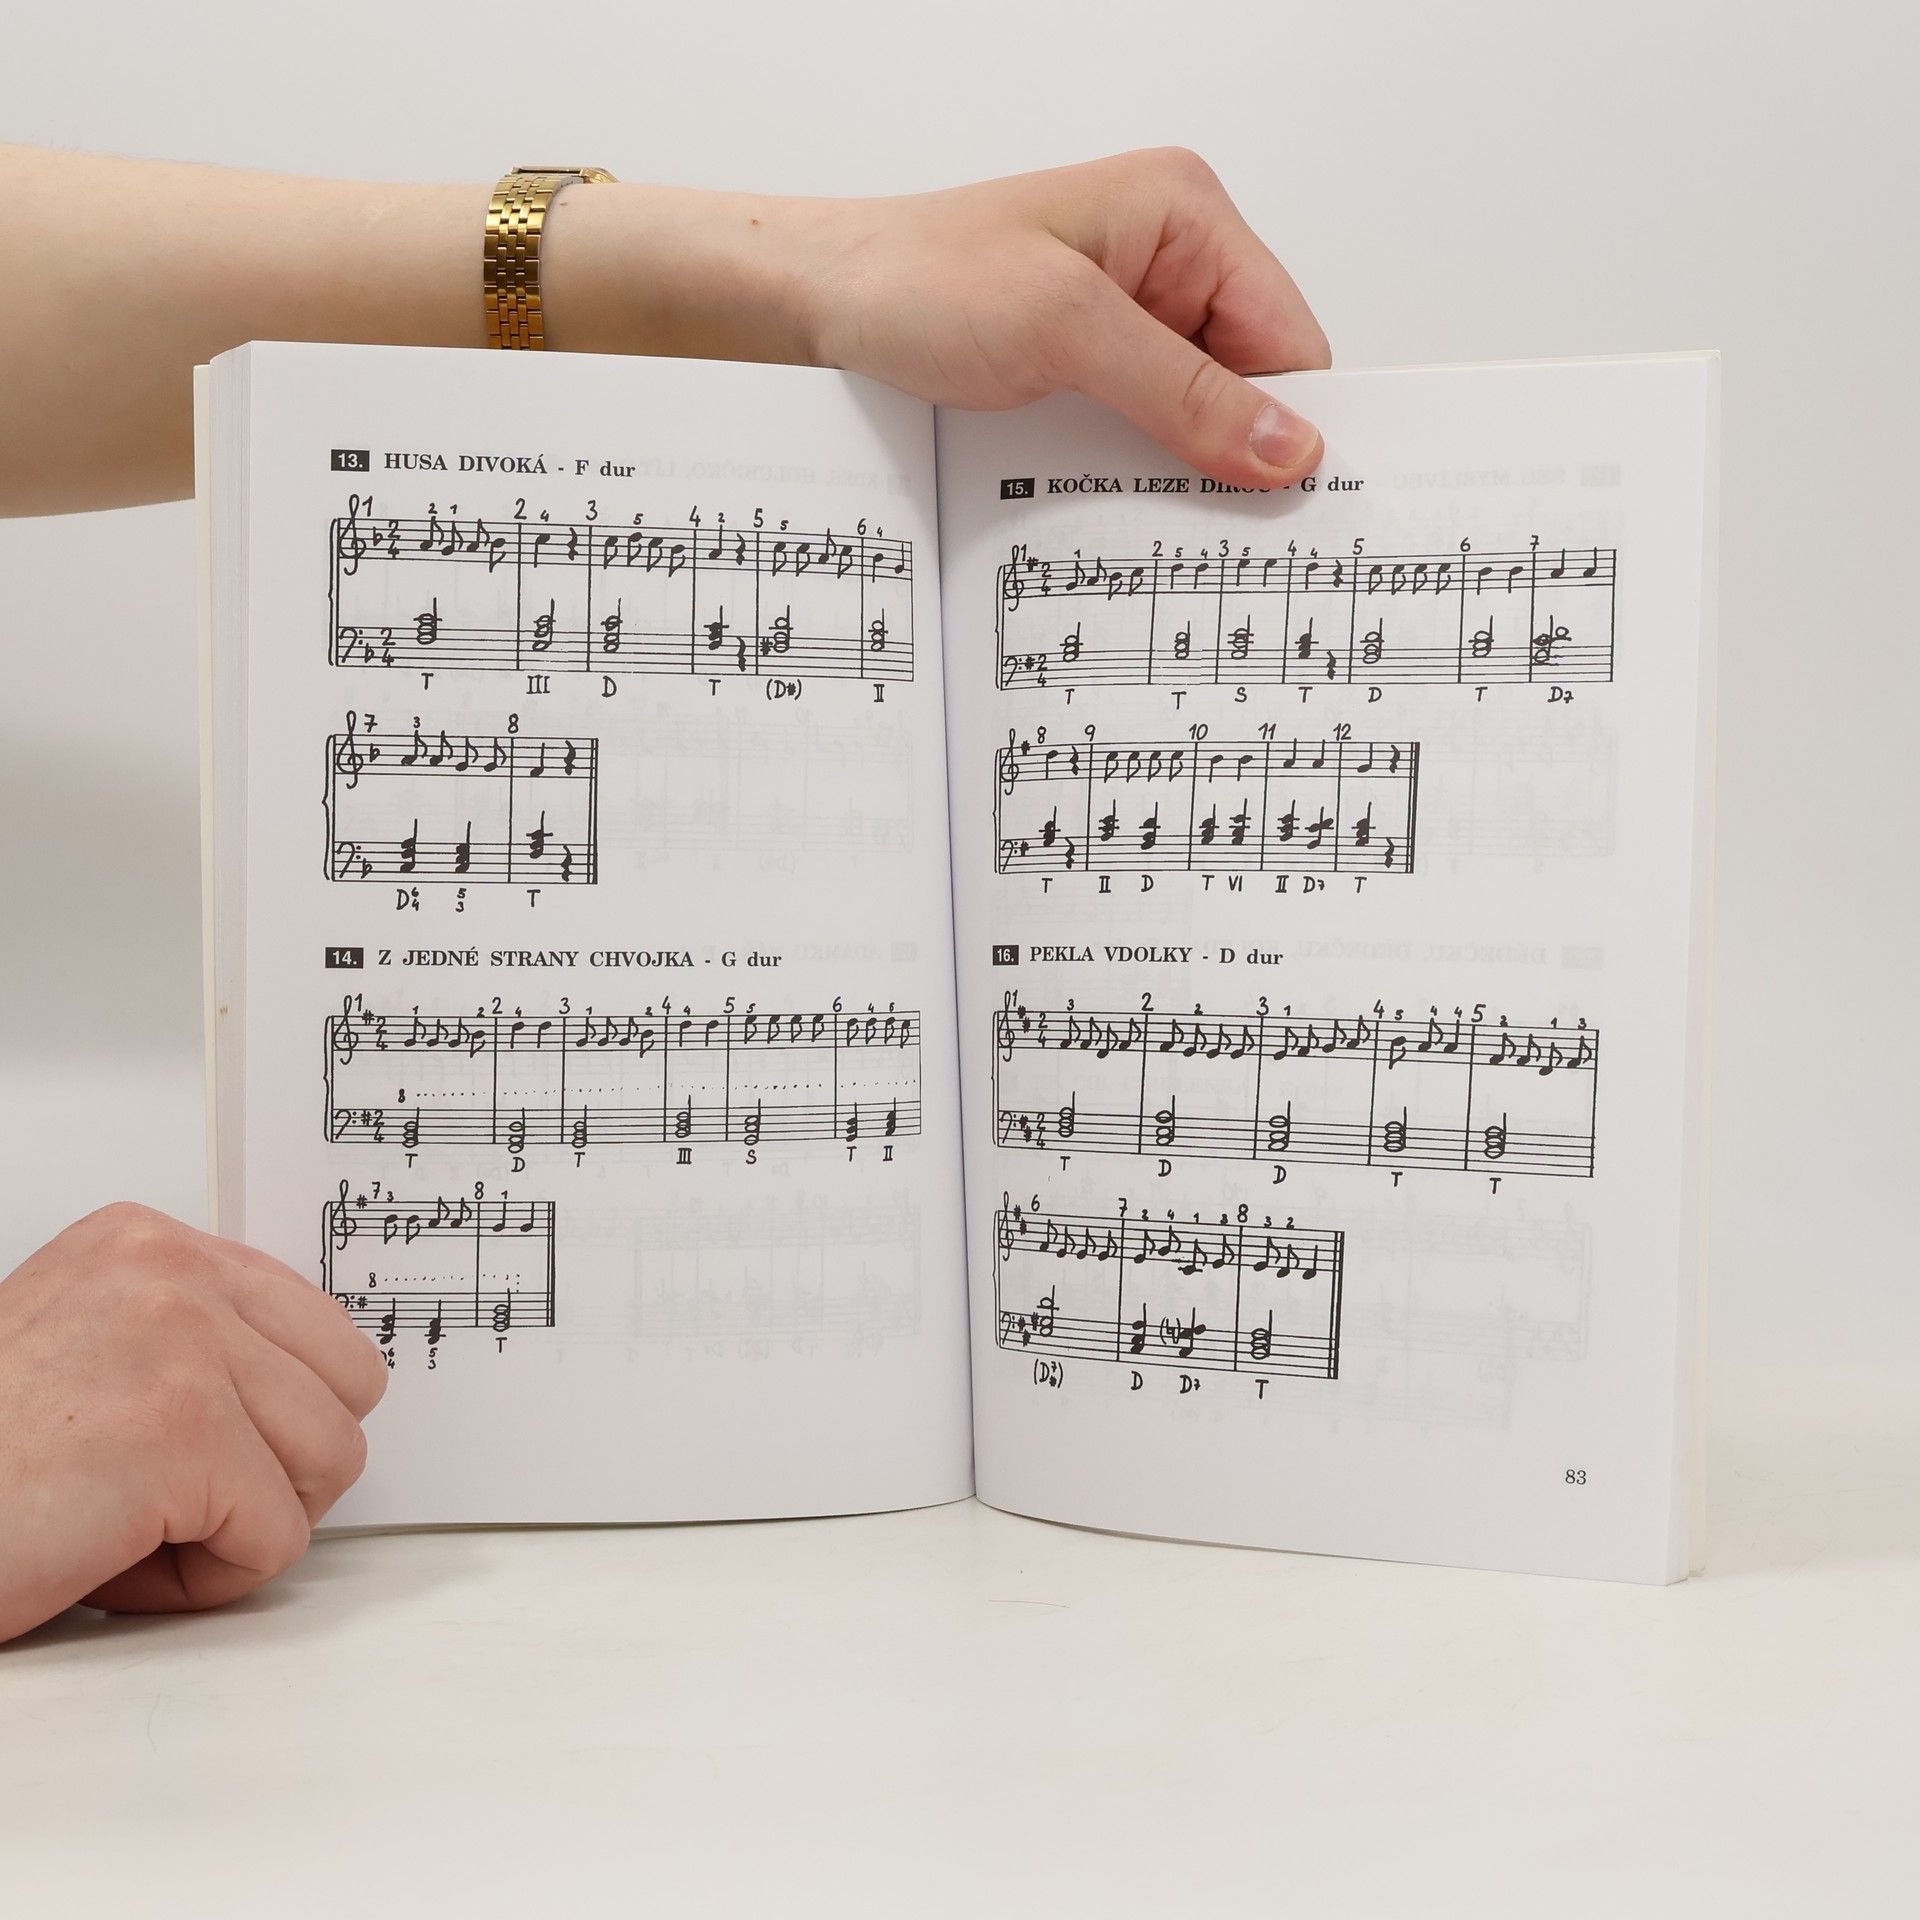 13. HUSA DIVOKÁ - F dur
1 2 1 2 4 3 5 4 2 5 5 6 4
2 4
2 4
T III D T (D#) II
7 3 8
D 6 4 5 3 T
14. Z JEDNÉ STRANY CHVOJKA - G dur
1 1 2 2 4 3 1 2 4 4 5 5 6 4 5
2 4
8
2 4
T D T III S T II
7 3 8 1
8
6 4 5 3 T
15. KOČKA LEZE - G dur
1 1 2 5 4 3 5 4 4 5 6 7
2 4
2 4
T T S T D T D7
8 9 10 11 12
T II D T VI II D7 T
16. PEKLA VDOLKY - D dur
1 3 2 2 3 1 4 5 4 4 5 2 1 3
2 4
2 4
T D D T T
6 7 2 4 1 3 8 3 2
(D7#) D D7 T
83